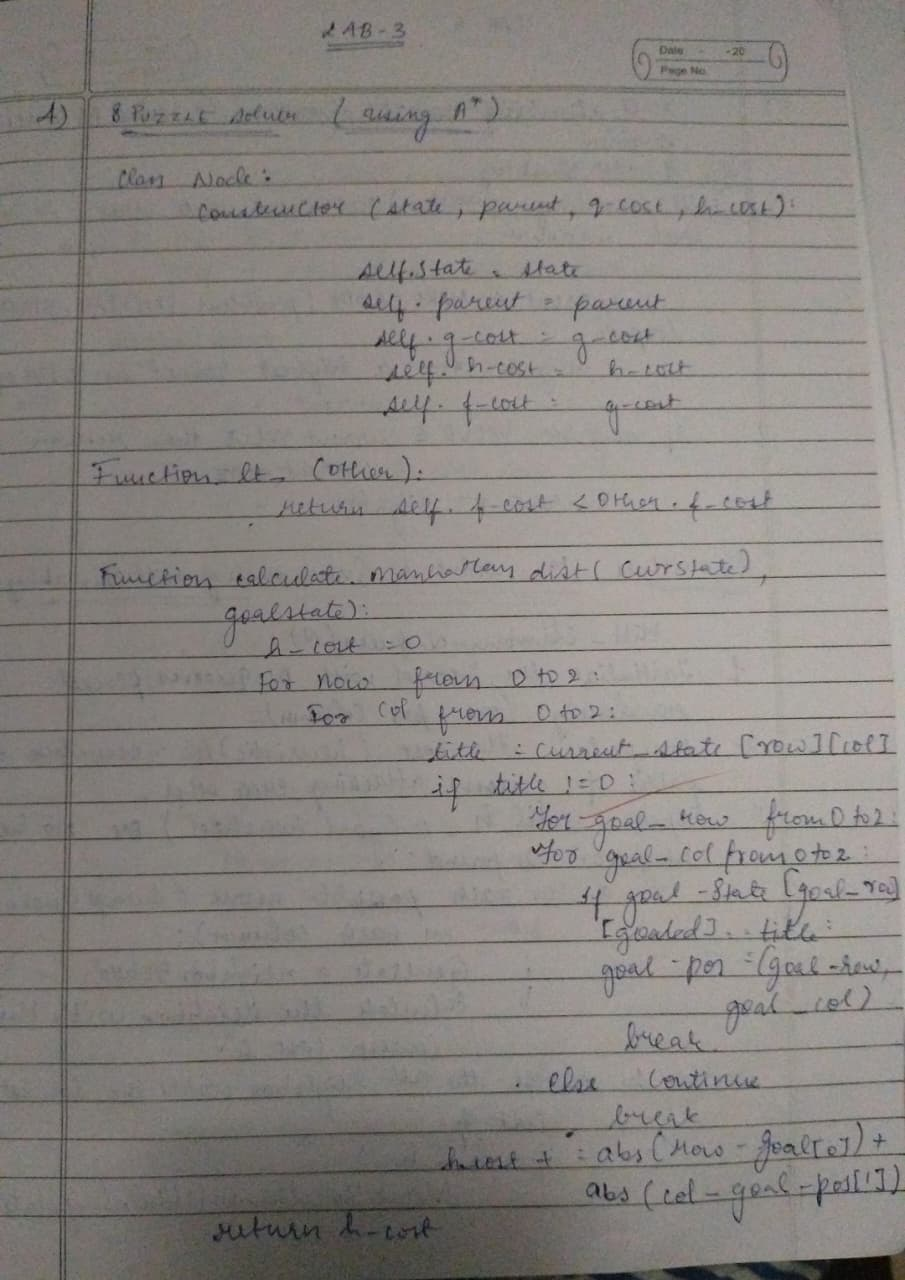 LAB-3
Date - -20
Page No.
A) 8 Puzzle solver (using A*)
Class Node:
Constructor (state, parent, g-cost, h-cost):
self.state = state
self.parent = parent
self.g-cost = g-cost
self.h-cost = h-cost
self.f-cost = g-cost
Function lt_ (other):
return self.f-cost < other.f-cost
Function calculate_manhattan dist (currstate),
goalstate):
h-cost = 0
For row from 0 to 2:
For col from 0 to 2:
title = current_state [row][col]
if title != 0:
for goal_row from 0 to 2:
for goal_col from 0 to 2:
if goal-state [goal_ro]
title:
goal-pos = (goal-row,
goal_col)
break
else continue
break
h-cost += abs (row - goal[0]) +
abs (col - goal-pos[1])
return h-cost